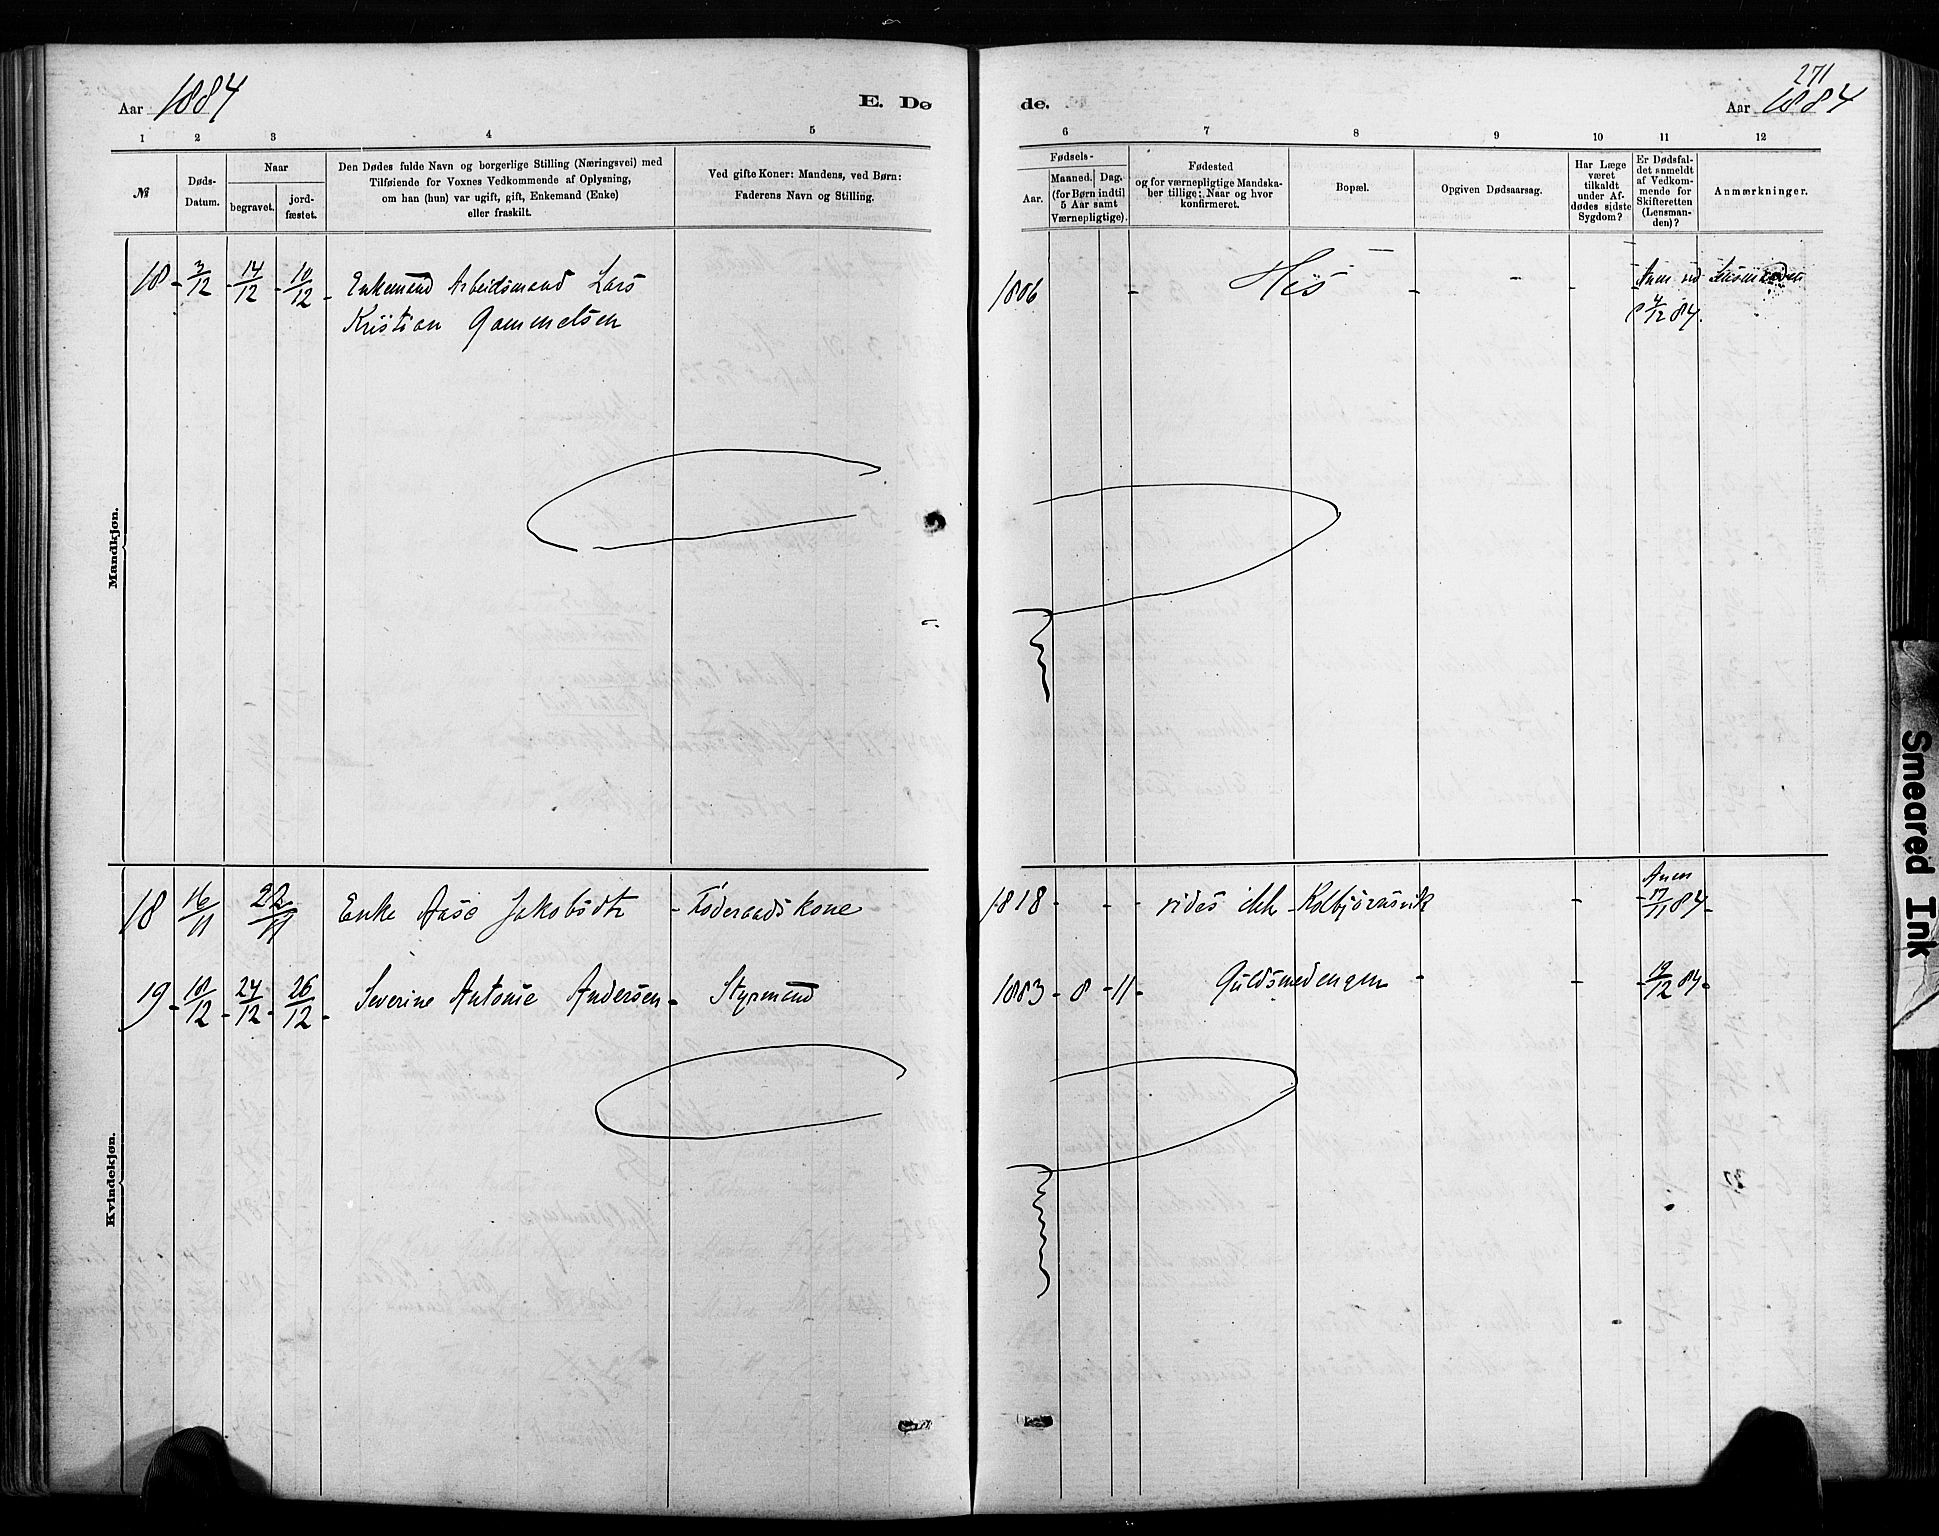 Aar 1884
E. Dø
1 2 3 4 5
№
Døds-
Datum.
Naar
begravet.
jord-
fæstet.
Den Dødes fulde Navn og borgerlige Stilling (Næringsvei) med
Tilføiende for Voxnes Vedkommende af Oplysning,
om han (hun) var ugift, gift, Enkemand (Enke)
eller fraskilt.
Ved gifte Koner: Mandens, ved Børn:
Faderens Navn og Stilling.
Mandkjøn.
18 - 3/12 - 14/12 - 10/12 - Enkemand Arbeidsmand Lars
Kristian Gammelsen
18 16/11 22/11 Enke Aase Jakobsdtr - Føderaadskone
19 - 10/12 - 24/12 - 26/12 - Severine Antonie Andersen - Styrmand
Kvindekjøn.
271
de.
Aar 1884
6 7 8 9 10 11 12
Fødsels-
Aar.
Maaned. Dag.
(for Børn indtil
5 Aar samt
Værnepligtige).
Fødested
og for værnepligtige Mandska-
ber tillige: Naar og hvor
konfirmeret.
Bopæl.
Opgiven Dødsaarsag.
Har Læge
været
tilkaldt
under Af-
dødes sidste
Sygdom?
Er Dødsfal-
det anmeldt
af Vedkom-
mende for
Skifteretten
(Lensman-
den)?
Anmærkninger.
1806 - His - - - - Anm ved
4/12 84.
Anm
1818 - - - vides ikk - Kolbjørnsvik - - 17/11 84 -
1883 - 8 - 11 - Guldsmedengen - - - 19/12 84 -
Smeared Ink